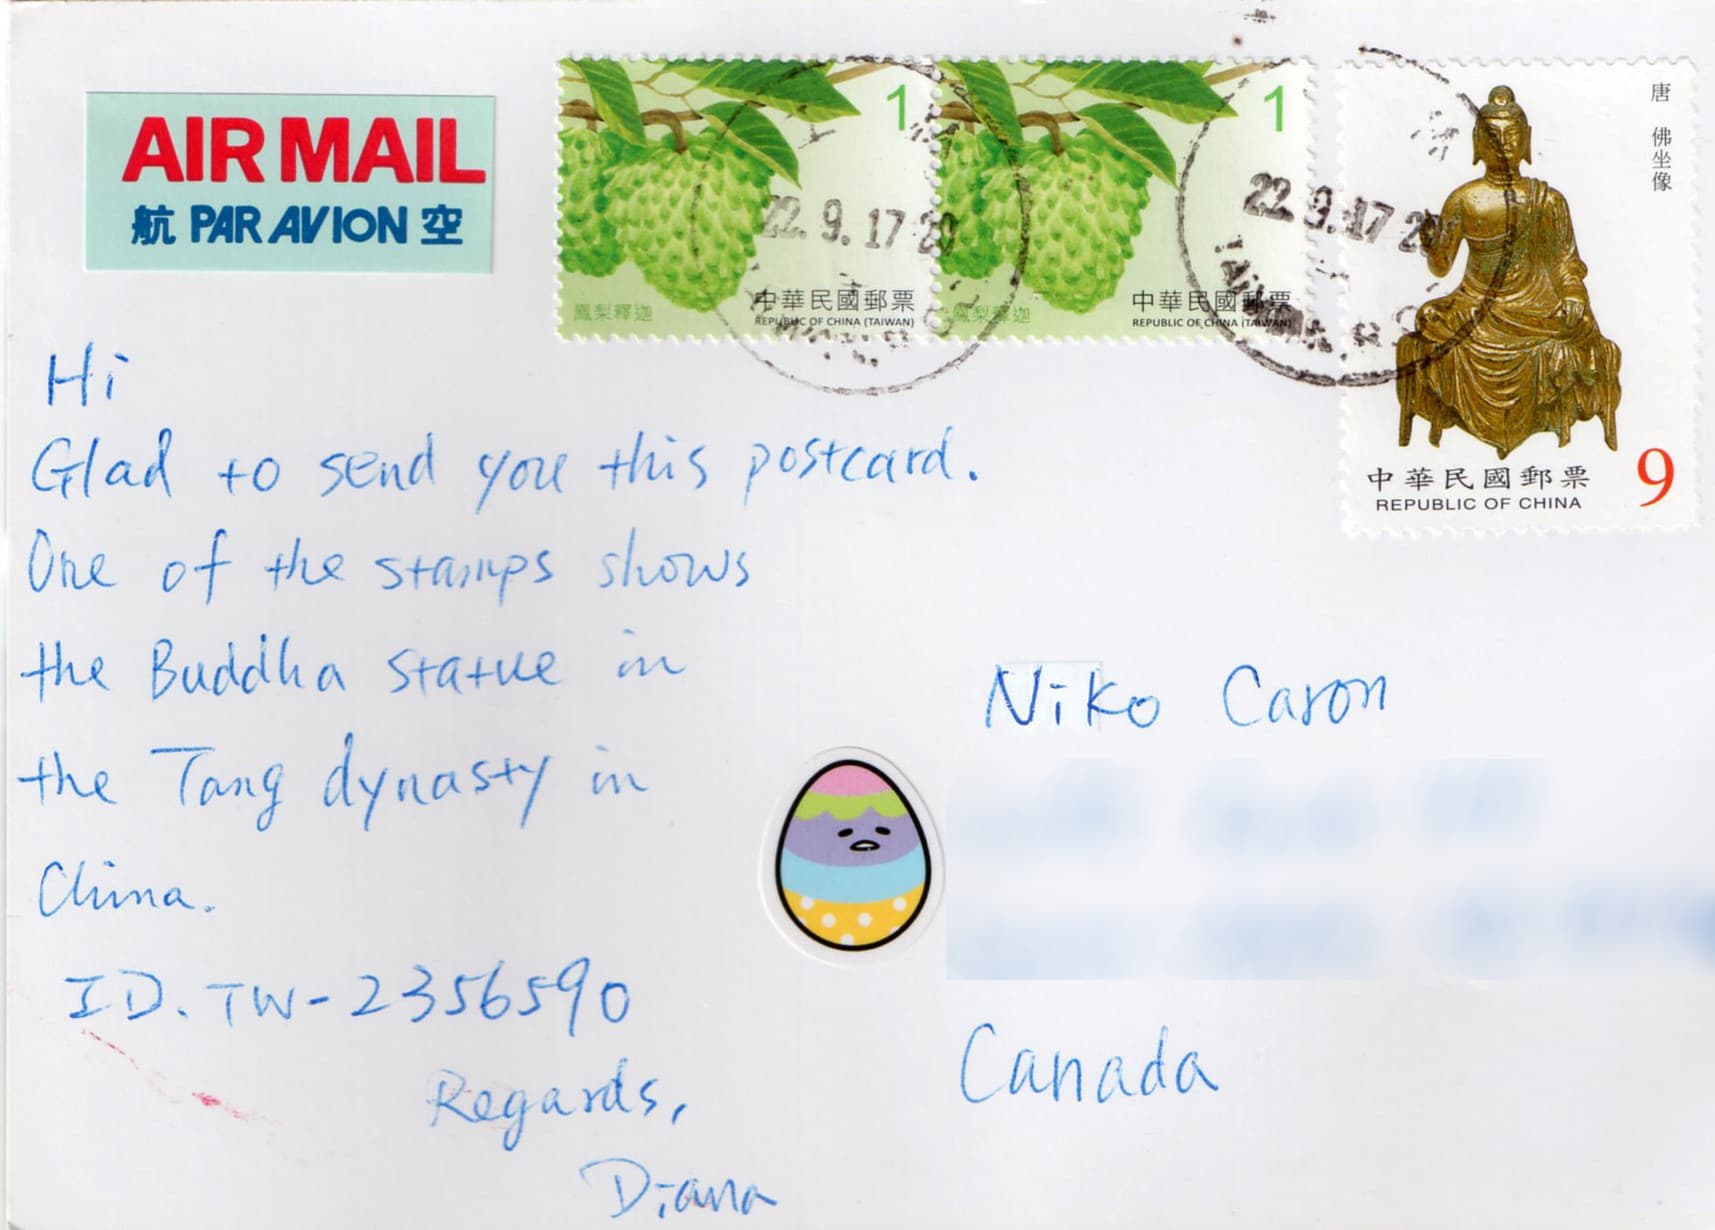 AIR MAIL
航 PAR AVION 空
1
22.9.17.20
鳳梨釋迦
中華民國郵票
REPUBLIC OF CHINA (TAIWAN)
1
22.9.17 20
鳳梨釋迦
中華民國郵票
REPUBLIC OF CHINA (TAIWAN)
唐 佛坐像
中華民國郵票
REPUBLIC OF CHINA
9
Hi
Glad to send you this postcard.
One of the stamps shows
the Buddha statue in
the Tang dynasty in
China.
ID. TW-2356590
Regards,
Diana
Niko Caron
Canada